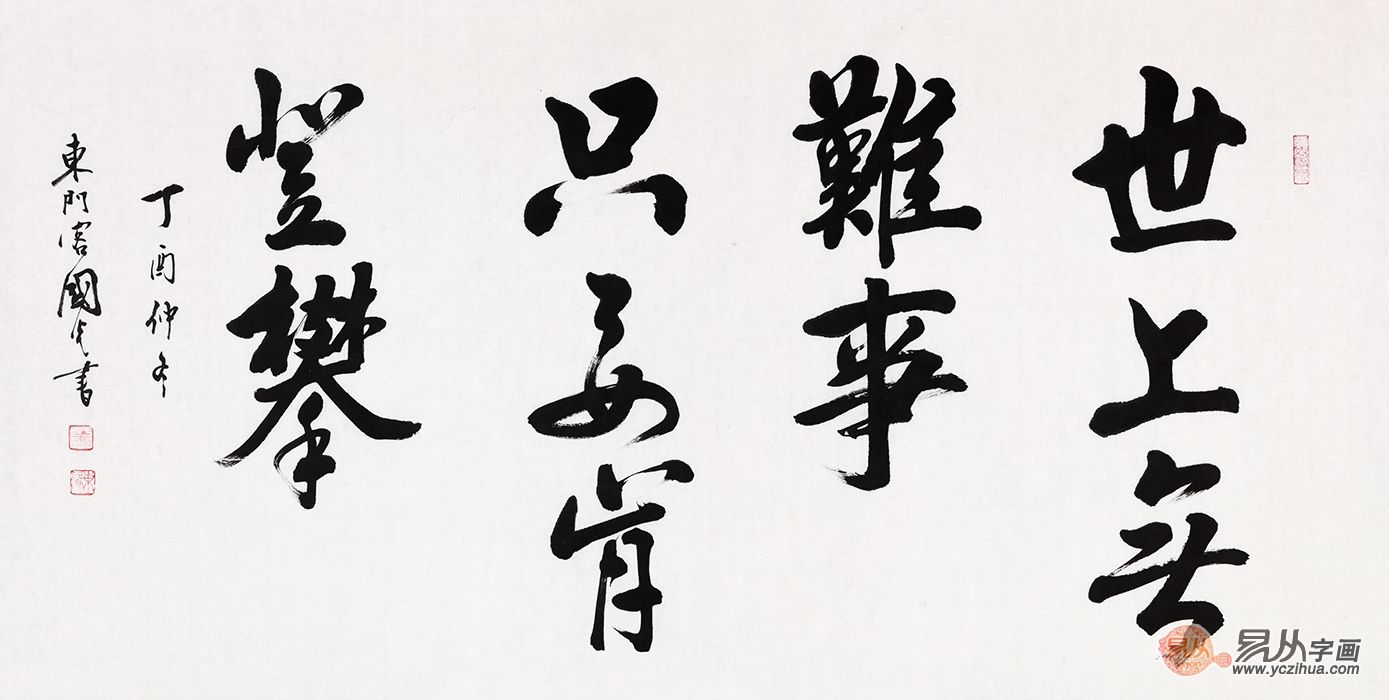 世上無
難事
只要肯
登攀
丁酉仲冬
東門客國光書
易从字画
www.yczihua.com